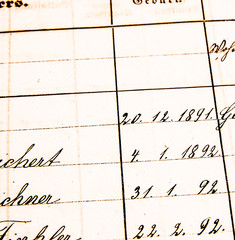 ers. Geburt
20. 12. 1891.
chert 4. 1. 1892
chner 31. 1. 92
22. 2. 92.